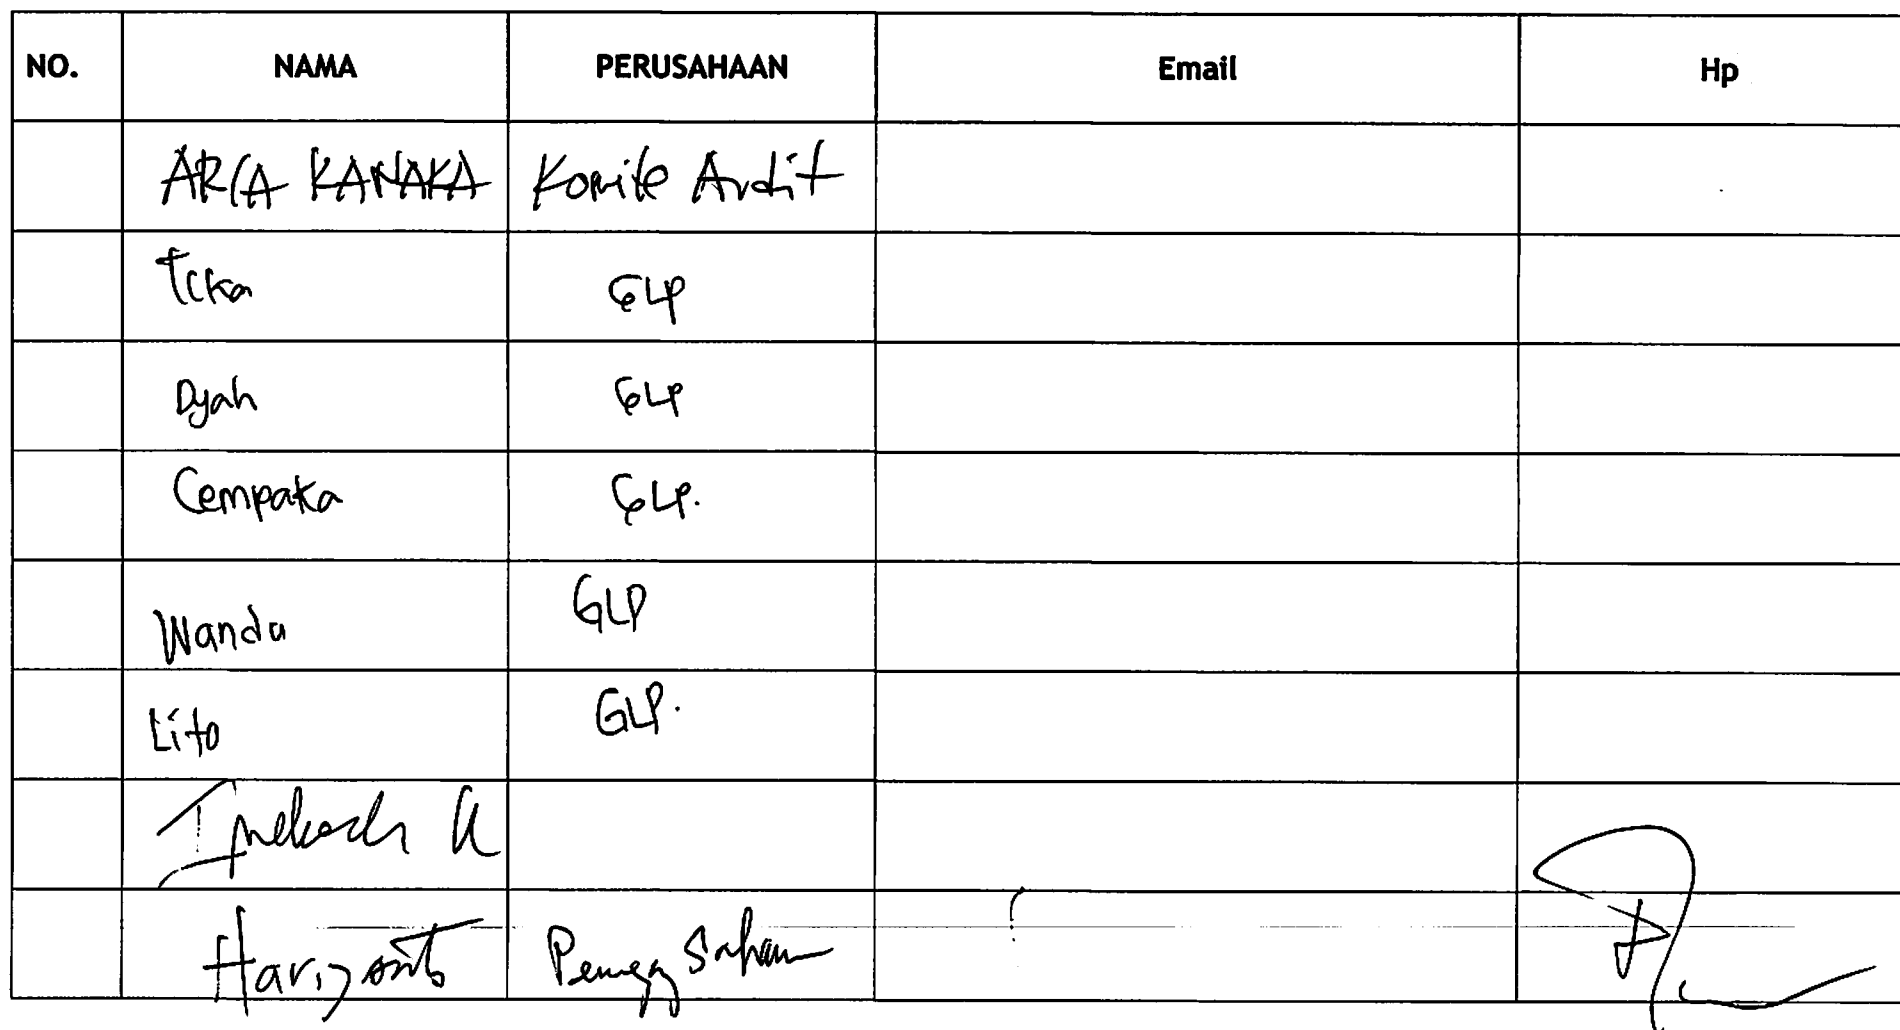 NO. NAMA PERUSAHAAN Email Hp
ARCA KANAKA Komite Audit
GLP
Dyah GLP
Cempaka GLP.
Wanda GLP
Lito GLP.
Hariyanto Saham